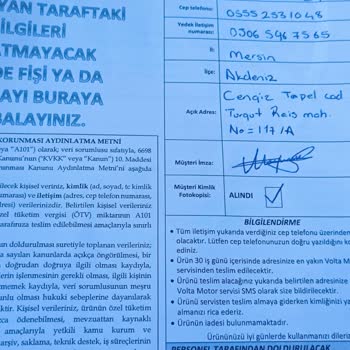 YAN TARAFTAKİ
BİLGİLERİ
ATMAYACAK
DE FİŞİ YA DA
AYI BURAYA
BALAYINIZ.
KORUNMASI AYDINLATMA METNİ
veya "A101") olarak; veri sorumlusu sıfatıyla, 6698
Kanunu'nun ("KVKK" veya "Kanun") 10. Maddesi
Korunması Kanunu Aydınlatma Metni'ni aşağıda
bilecek kişisel veriniz, kimlik (ad, soyad, tc kimlik
numarası) ve iletişim (adres, cep telefon numarası,
adresi) verilerinizdir. Belirtilen kişisel verileriniz
özel tüketim vergisi (ÖTV) miktarının A101
tarafınıza teslim edilebilmesi amaçlarıyla sınırlı
un doldurulması suretiyle toplanan verileriniz;
sayılan kanunlarda açıkça öngörülmesi, bir
doğrudan doğruya ilgili olması kaydıyla,
lerin işlenmesinin gerekli olması, ilgili kişinin
memek kaydıyla, veri sorumlusunun meşru
unlu olması hukuki sebeplerine dayanılarak
ktir. Kişisel verileriniz, ürünün özel tüketim
ıza ödenebilmesi, mevzuattan kaynaklı
amaçlarıyla yetkili kamu kurum ve
arşiv, saklama, teknik destek, iş süreçlerinin
Cep telefonu:
0555 2531048
Yedek iletişim
numarası:
0506 546 7565
İl:
Mersin
İlçe:
Akdeniz
Açık Adres:
Cengiz Topel cad
Turgut Reis mah.
No = 117/A
Müşteri İmza:
Müşteri Kimlik
Fotokopisi:
ALINDI
BİLGİLENDİRME
• Tüm iletişim yukarıda verdiğiniz cep telefonu üzerinden
olacaktır. Lütfen cep telefonunuzun doğru yazıldığını ko
ediniz.
• Ürün 30 iş günü içerisinde adresinize en yakın Volta M
servisinden teslim edilecektir.
• Ürünü teslim alacağınız yukarıda belirtilen adresinize
Volta Motor servisi SMS olarak size bildirilecektir.
• Ürünü servisten teslim almaya giderken kimliğinizi ya
almanızı rica ederiz.
• Ürünün iadesi bulunmamaktadır.
Ürününüzü iyi günlerde kullanmanızı dileri
PERSONEL TARAFINDAN DOLDURULACAK